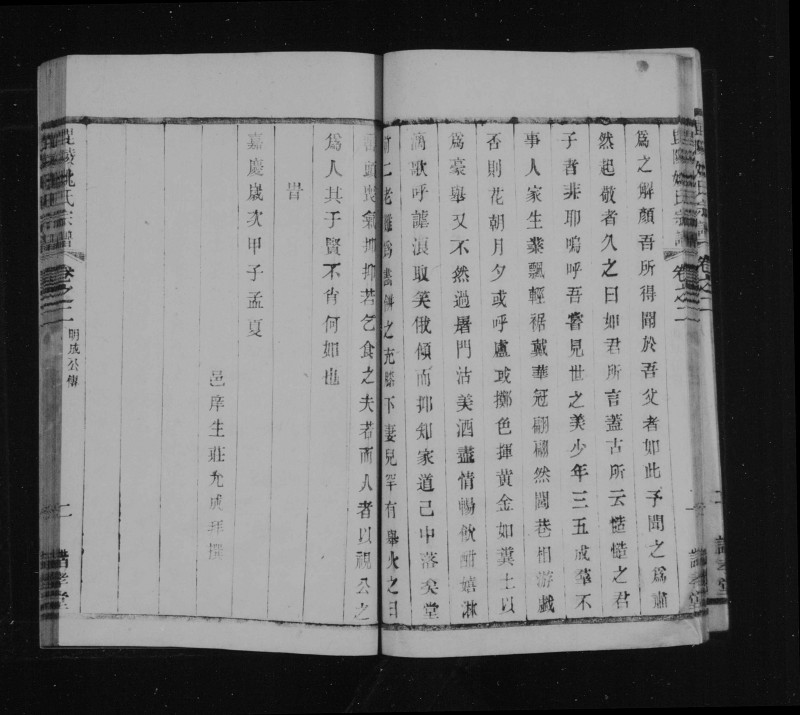 爲之解顏吾所得聞於吾父者如此予聞之爲肅
然起敬者久之曰如君所言蓋古所云慥慥之君
子者非耶嗚呼吾嘗見世之美少年三五成羣不
事人家生業飄輕裾戴華冠翩翩然閭巷相游戲
否則花朝月夕或呼盧或擲色揮黃金如糞土以
爲豪舉又不然過屠門沽美酒盡情暢飲酣嬉淋
漓歌呼謔浪取笑俄傾而抑知家道已中落矣堂
有二老難爲晝餅之充膝下妻兒罕有舉火之日
頭喪氣抑抑若乞食之夫若而人者以視公之
爲人其于賢不肖何如也
旹
嘉慶歲次甲子孟夏
邑庠生莊允成拜撰
毘陵姚氏宗譜
卷之二
明成公傳
二